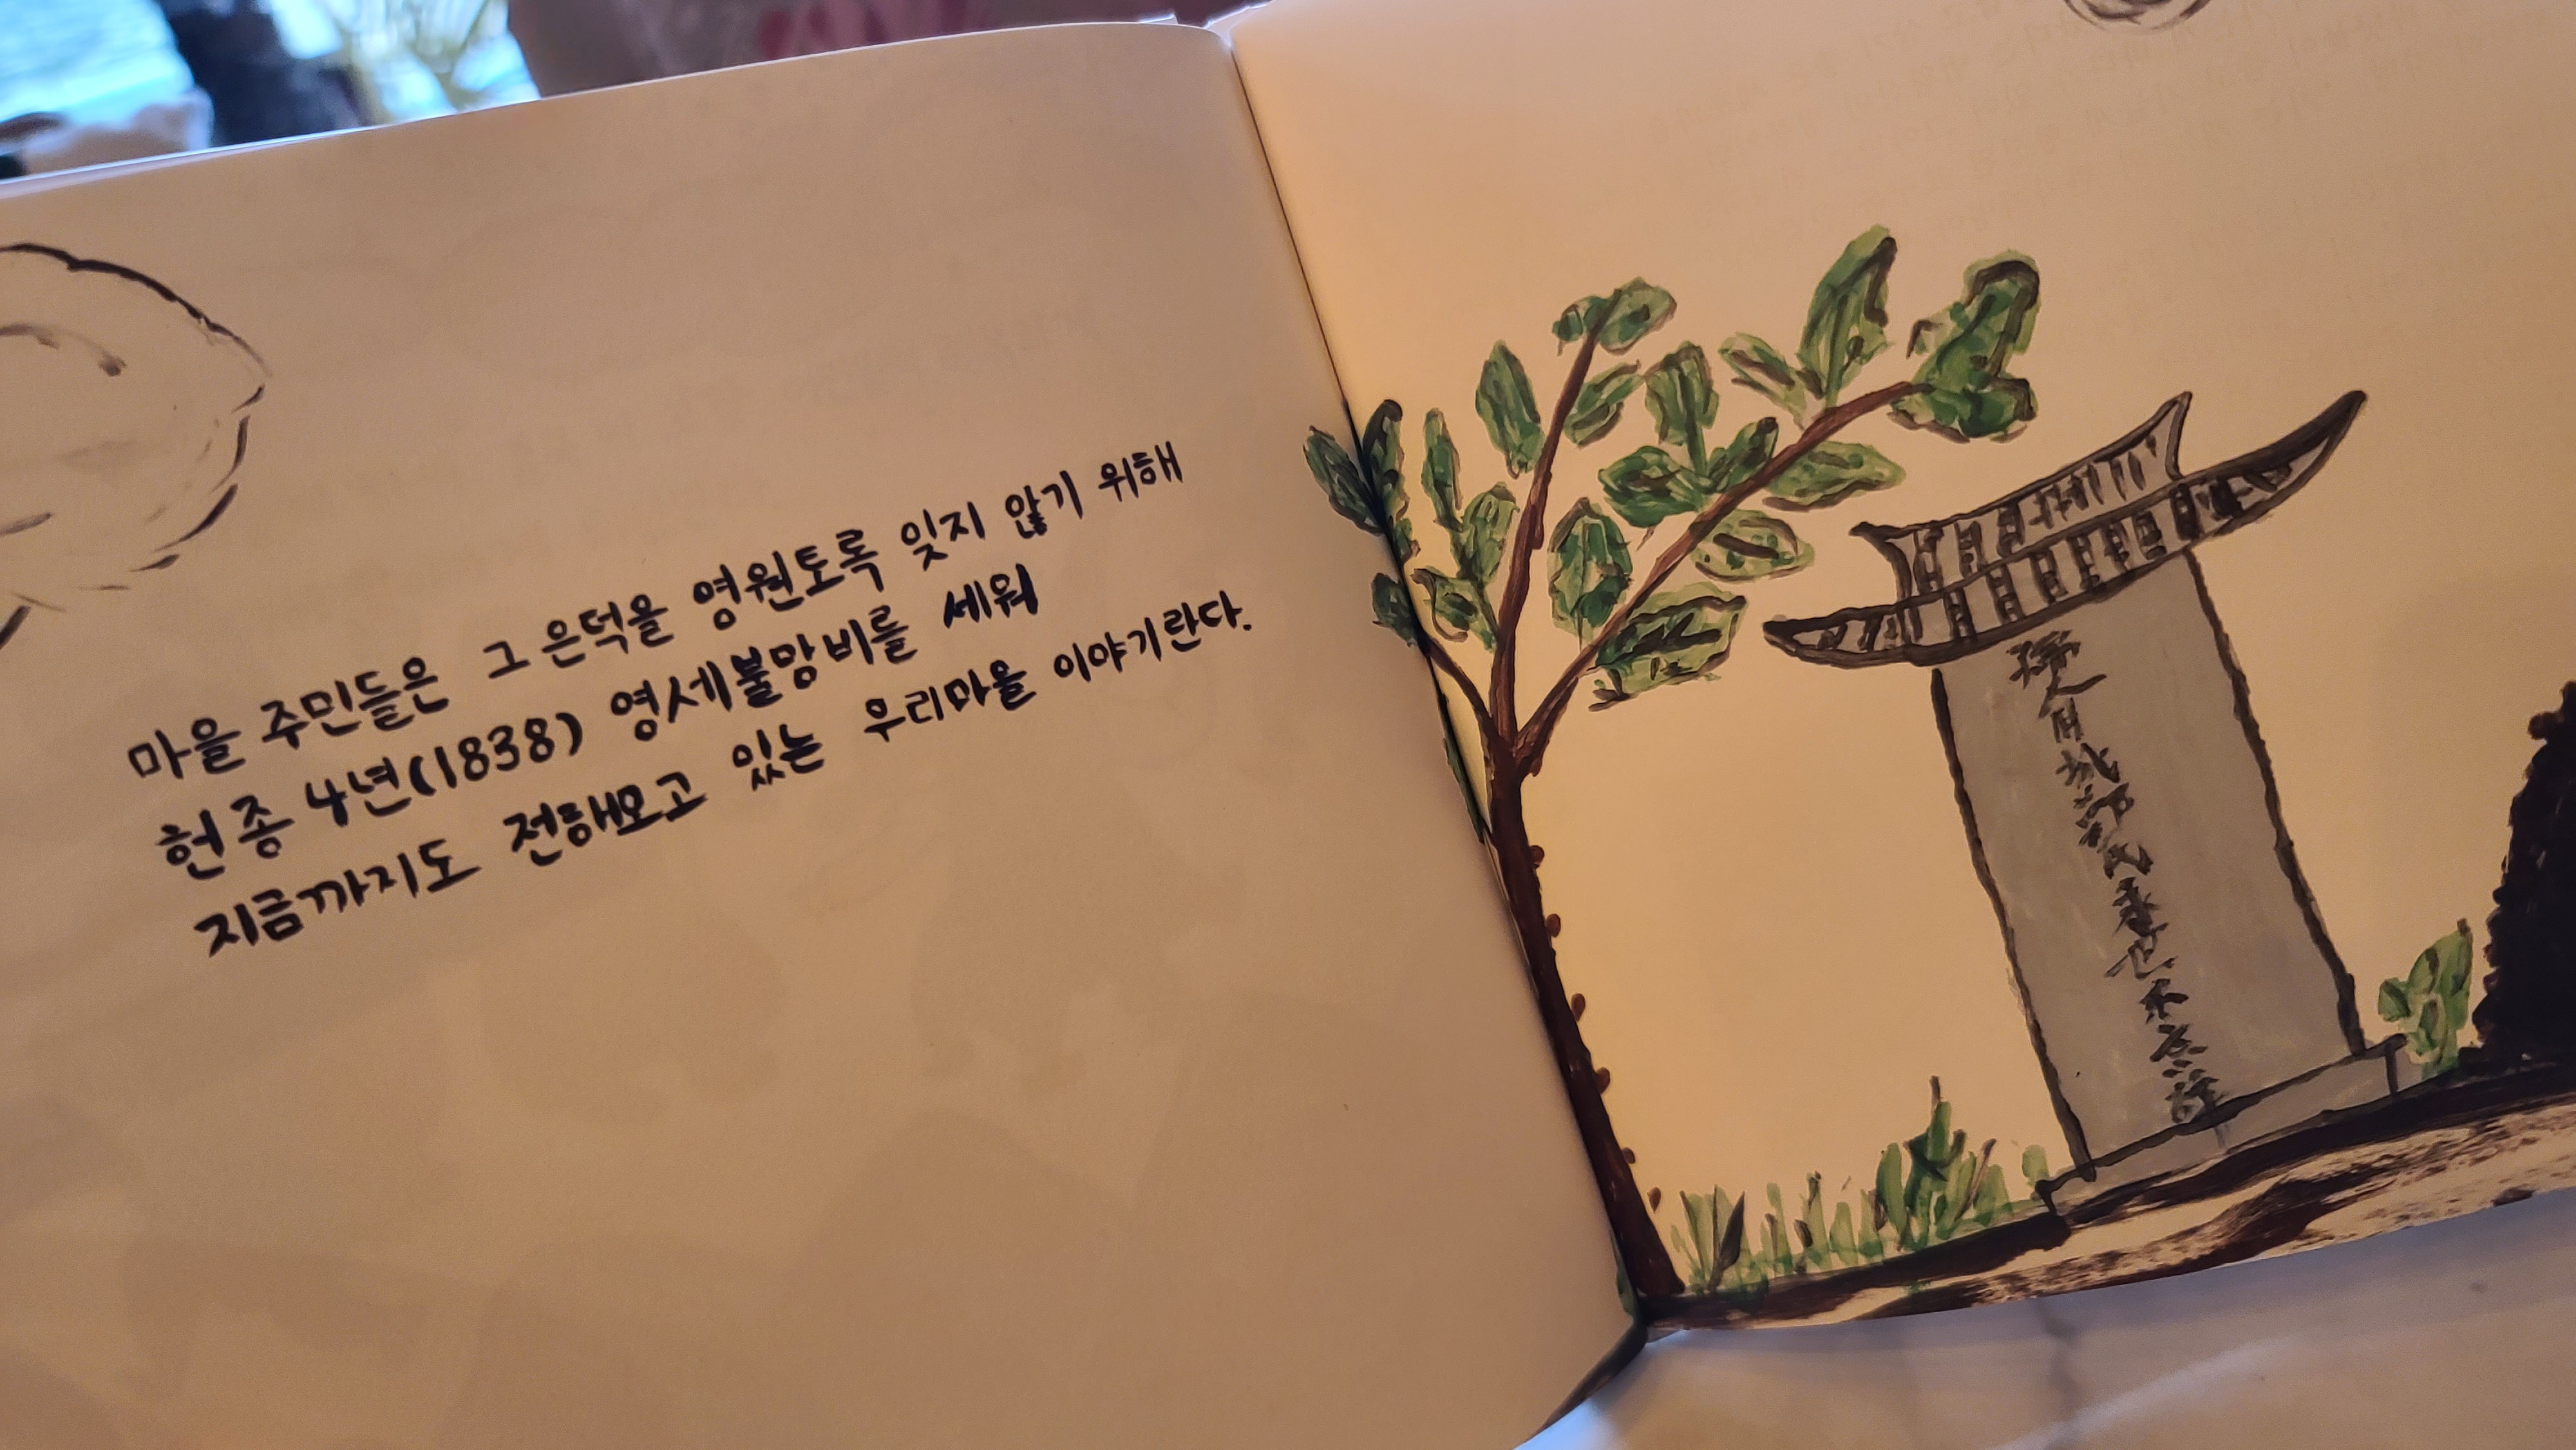 마을 주민들은 그 은덕을 영원토록 잊지 않기 위해
헌종 4년(1838) 영세불망비를 세워
지금까지도 전해오고 있는 우리마을 이야기란다.
人
氏
世不忘